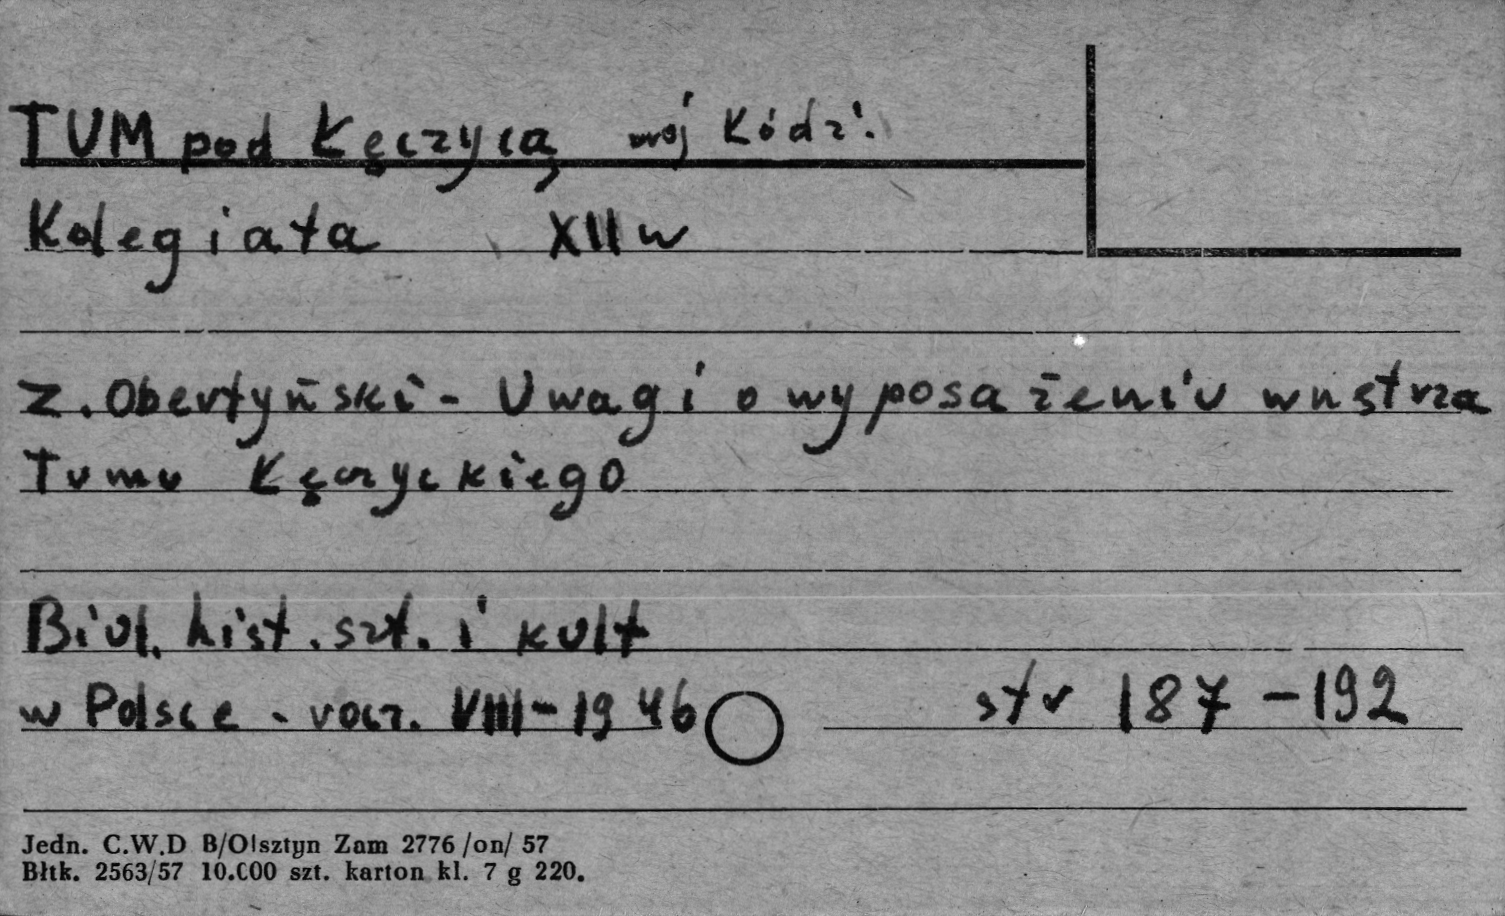 TUM pod Łęczycą woj Łódź.
Kolegiata XII w
Z. Obertyński - Uwagi o wyposażeniu wnętrza
Tumu Łęczyckiego
Biul. hist. szt. i kult
w Polsce - rocz. VIII - 1946 str 187 - 192
Jedn. C.W.D B/Olsztyn Zam 2776 /on/ 57
Błtk. 2563/57 10.000 szt. karton kl. 7 g 220.